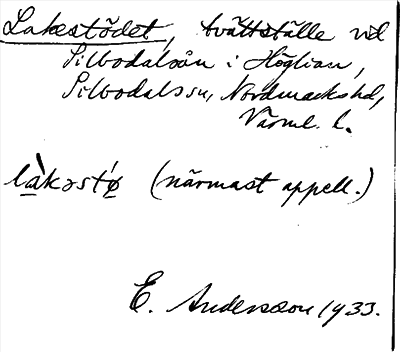 Lakestödet, tvättställe vid
Silbodalsån i Höglian,
Silbodals sn, Nordmarks hd,
Värml. l.
là̱kəstǿ̱ (närmast appell.)
E. Andersson 1933.